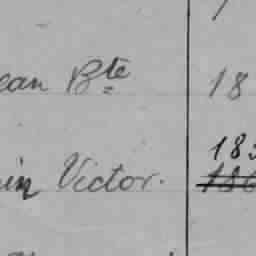 ean Bte 18
in Victor. 183